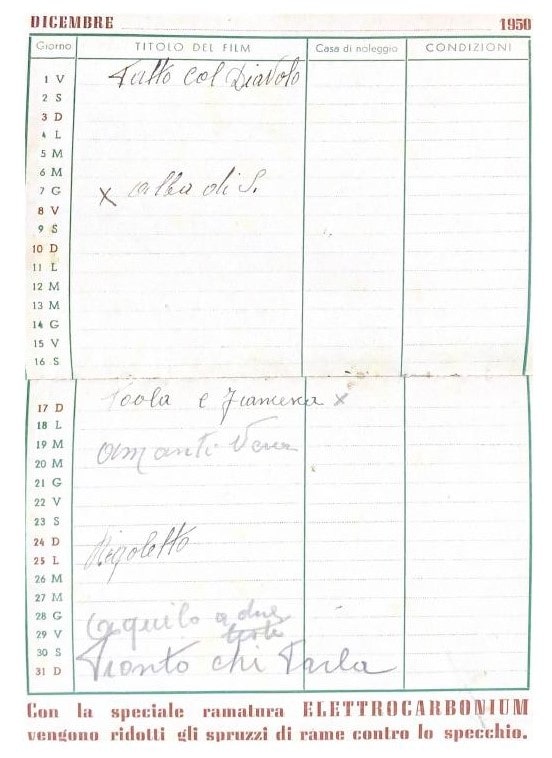 DICEMBRE 1950
Giorno TITOLO DEL FILM Casa di noleggio CONDIZIONI
1 V Patto col Diavolo
2 S
3 D
4 L
5 M
6 M
7 G x alba di S.
8 V
9 S
10 D
11 L
12 M
13 M
14 G
15 V
16 S
17 D e x
18 L
19 M amanti
20 M
21 G
22 V
23 S
24 D Rigoletto
25 L
26 M
27 M
28 G aquila a due
29 V teste
30 S Pronto chi Parla
31 D
Con la speciale ramatura ELETTROCARBONIUM
vengono ridotti gli spruzzi di rame contro lo specchio.